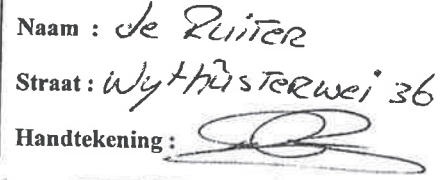 Naam : de Ruiter
Straat : Wythústerwei 36
Handtekening :